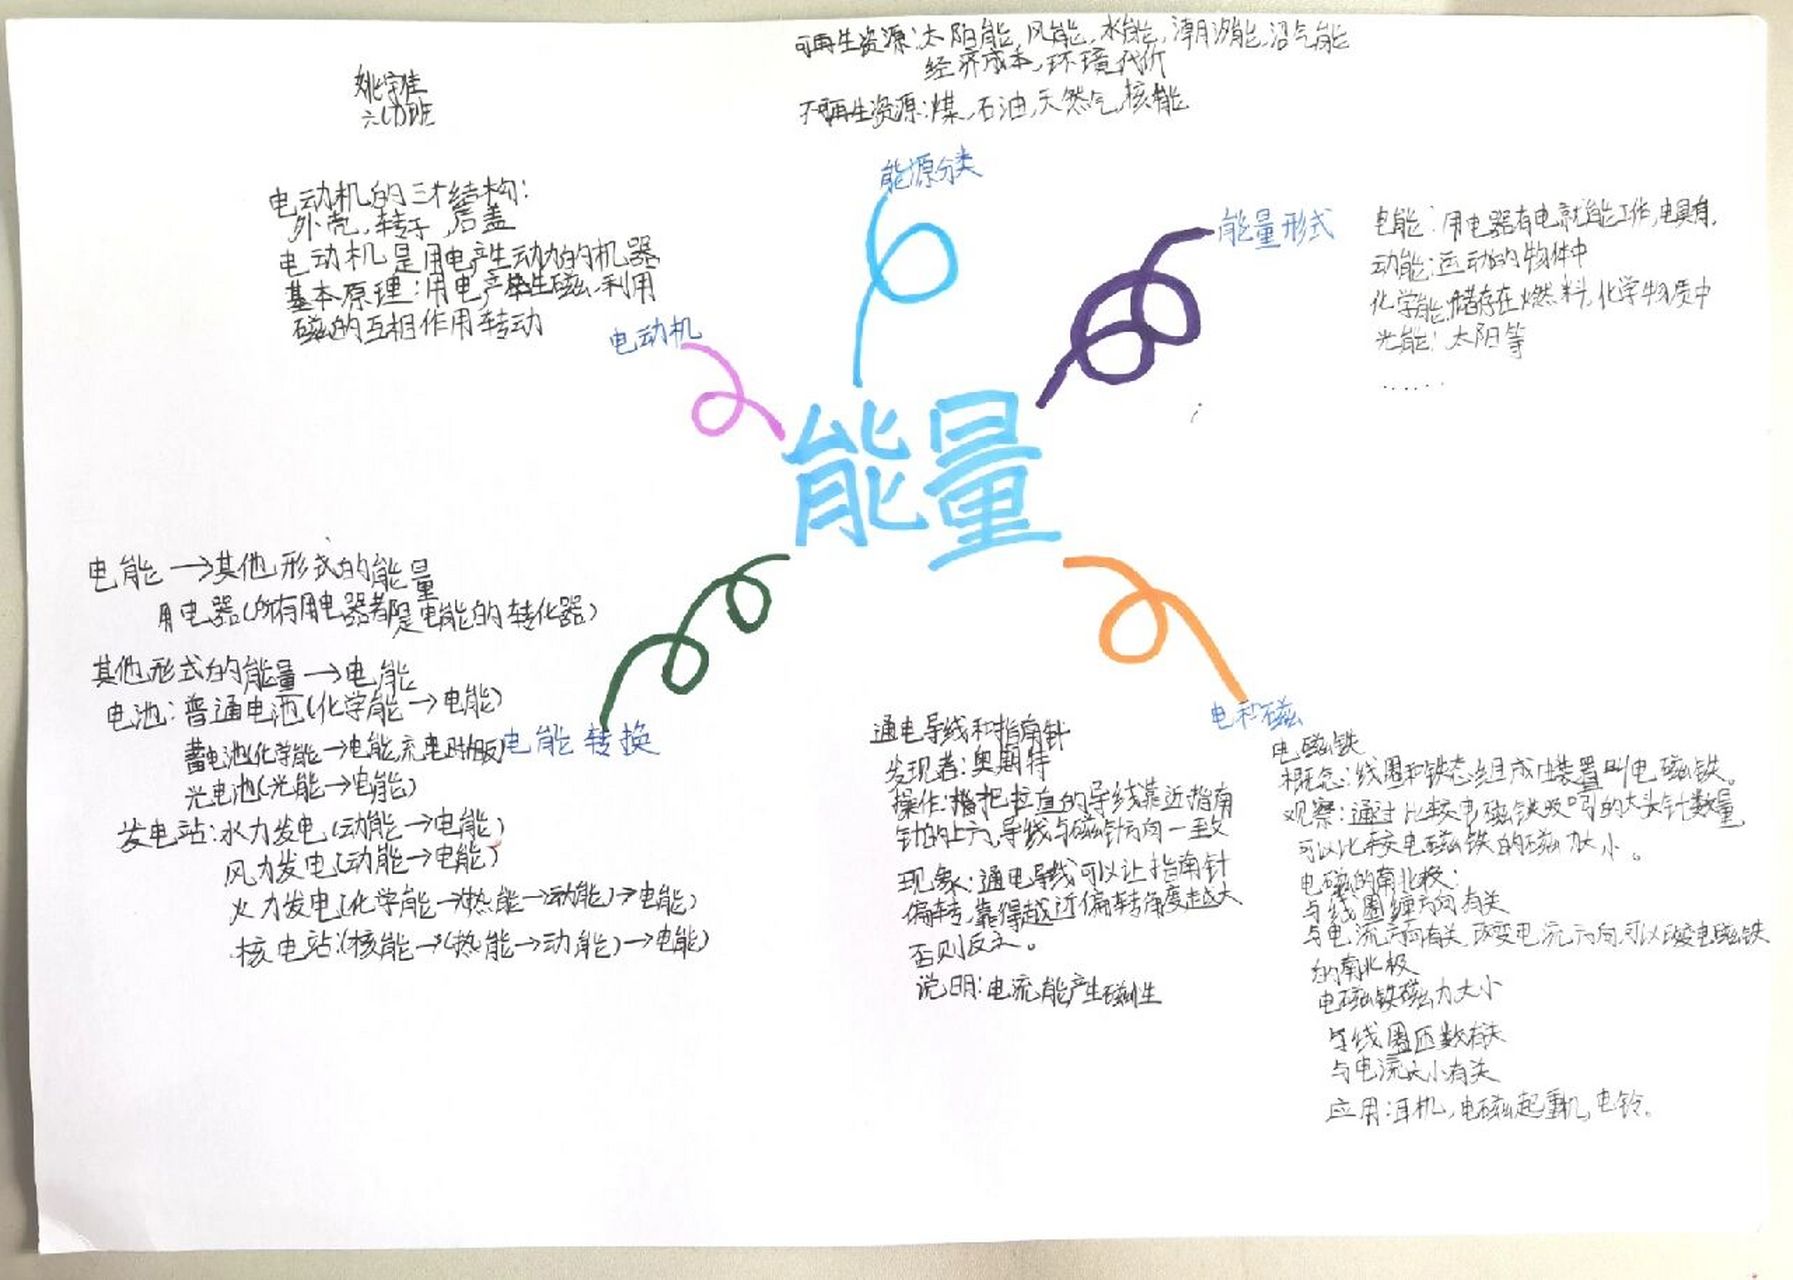 姚宇佳
六(1)班
可再生资源:太阳能,风能,水能,潮汐能,沼气能
经济成本,环境代价
不可再生资源:煤,石油,天然气,核能
能源分类
能量形式
电能:用电器有电就能工作,电具有,
动能:运动的物体中
化学能:储存在燃料,化学物质中
光能:太阳等
......
电动机的三个结构:
外壳,转子,后盖
电动机是用电产生动力的机器
基本原理:用电产生磁,利用
磁的互相作用转动
电动机
能量
电能→其他形式的能量
用电器(所有用电器都是电能的转化器)
其他形式的能量→电能
电池:普通电池(化学能→电能)
蓄电池(化学能→电能,充电时相反)
光电池(光能→电能)
发电站:水力发电(动能→电能)
风力发电(动能→电能)
火力发电(化学能→热能→动能)→电能)
核电站:(核能→(热能→动能)→电能)
电能转换
电和磁
通电导线和指南针
发现者:奥斯特
操作:把拉直的导线靠近指南
针的上方,导线与磁针方向一致
现象:通电导线可以让指南针
偏转,靠得越近偏转角度越大
否则反之。
说明:电流能产生磁性
电磁铁
概念:线圈和铁芯组成的装置叫电磁铁。
观察:通过比较电磁铁吸引的大头针数量
可以比较电磁铁的磁力大小。
电磁的南北极:
与线圈缠方向有关
与电流方向有关,改变电流方向可以改变电磁铁
的南北极
电磁铁磁力大小
与线圈匝数有关
与电流大小有关
应用:耳机,电磁起重机,电铃。